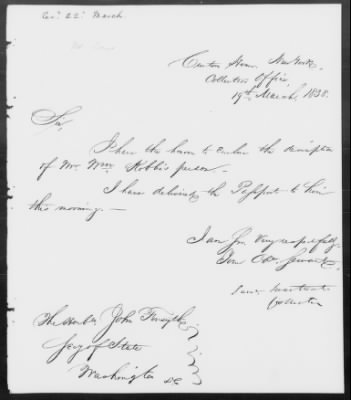 Rec'd 22d March
Custom House New York
Collectors Office
19th March, 1838.
Sir,
I have the honor to enclose the description
of Mr. Wm Robbi's person. —
I have delivered the Passport to him
this morning. —
I am Sir Very respectfully
Your Obt. Servant
Collector
The Honble John Forsyth
Secy of State
Washington DC